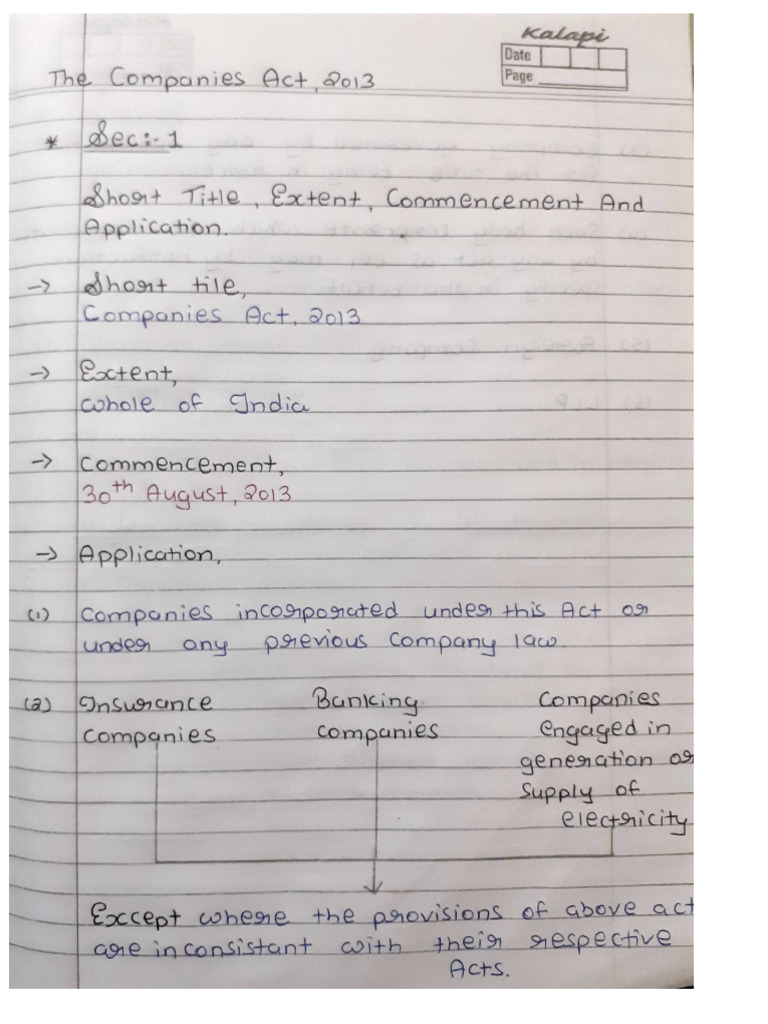 Kalapi
Date
Page
The Companies Act, 2013
* Sec:- 1
Short Title, Extent, Commencement And
Application.
-> Short tile,
Companies Act, 2013
-> Extent,
whole of India
-> Commencement,
30th August, 2013
-> Application,
(1) Companies incorporated under this Act or
under any previous Company law.
(2) Insurance Banking Companies
companies companies engaged in
generation or
Supply of
electricity
Exccept where the provisions of above act
are inconsistant with their respective
Acts.